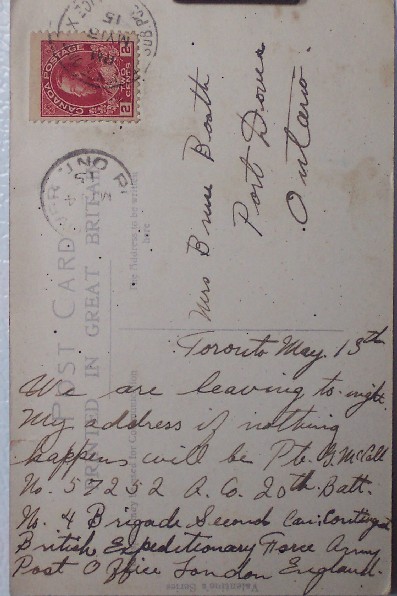 CANADA POSTAGE
2 CENTS 2
POST CARD
PRINTED IN GREAT BRITAIN
The Address to be written
here
Mrs Bruce Booth
Port Dover
Ontario.
Toronto May. 13th
We are leaving to-night.
My address if nothing
happens will be Pte. G. McCall
No. 57252 A. Co. 20th Batt.
No. 4 Brigade Second Can. Contingent
British Expeditionary Force Army
Post Office London England.
Valentine's Series